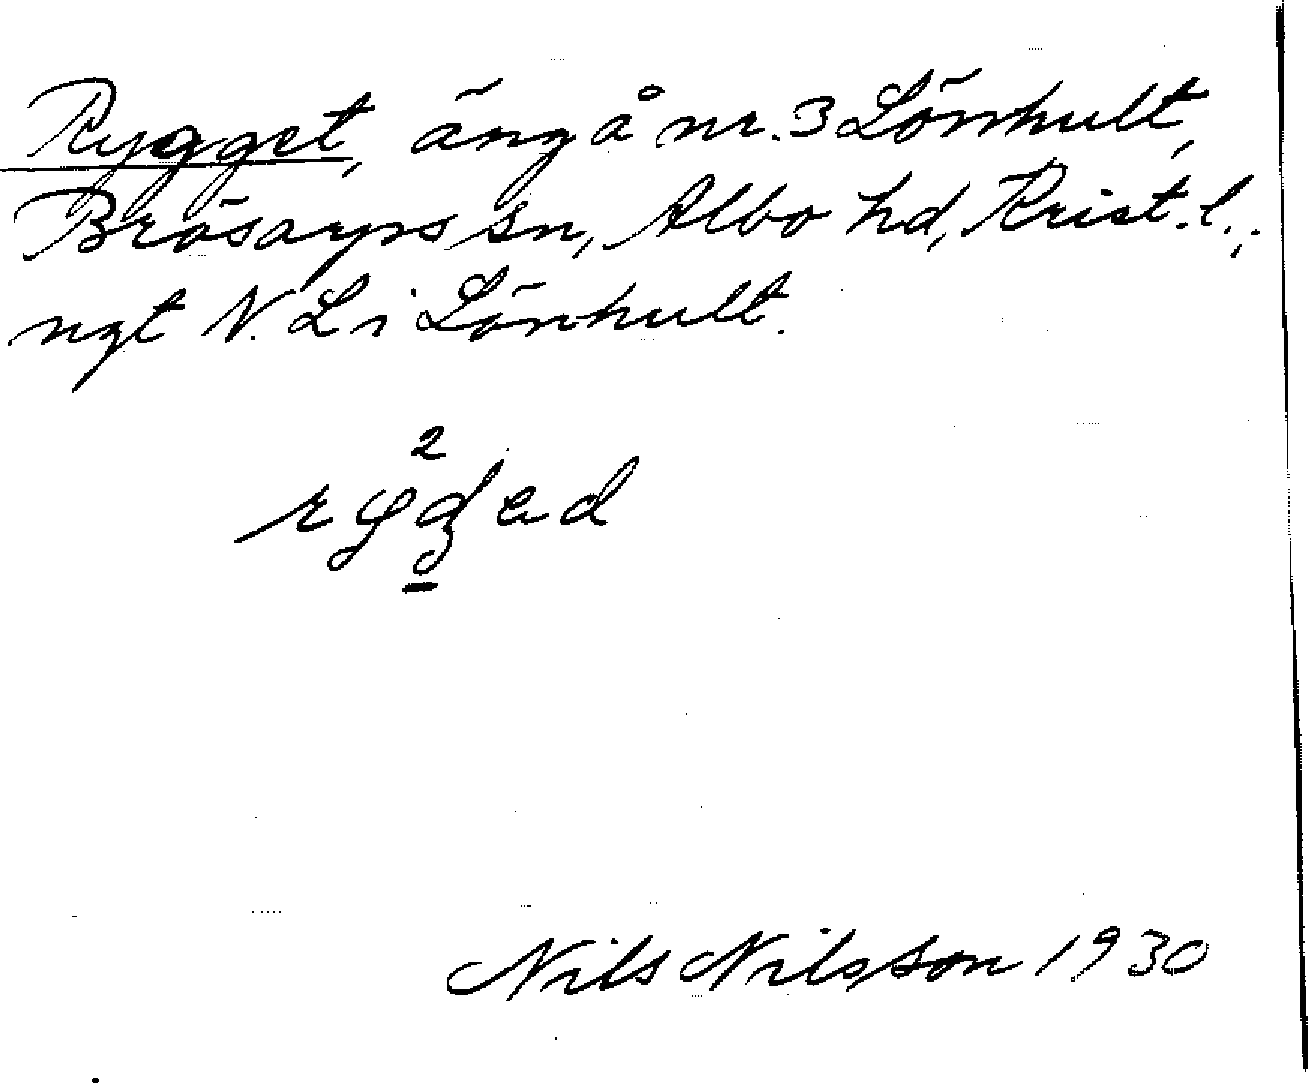 Rygget, äng å nr. 3 Lönhult,
Brösarps sn, Albo hd, Krist. l.;
ngt N. L i Lönhult.
2
Nils Nilsson 1930